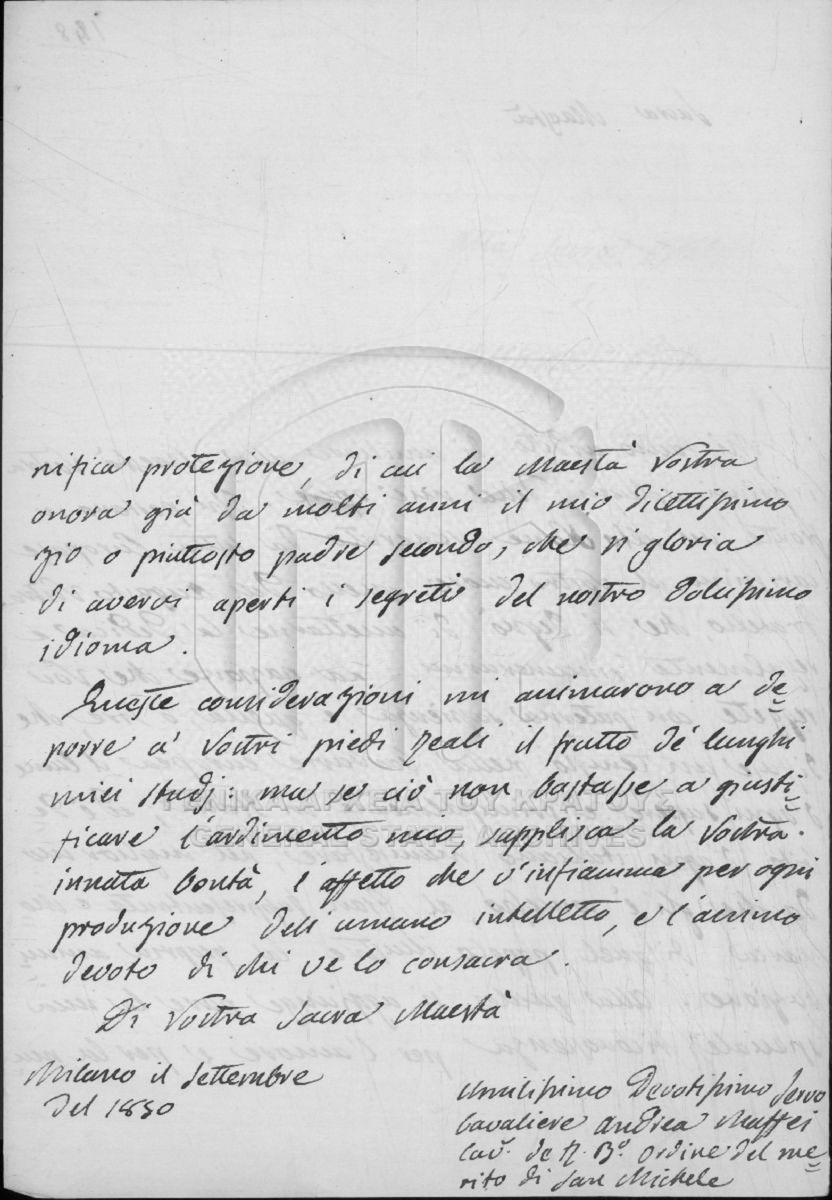 nifica protezione, di cui la Maestà Vostra
onora già da molti anni il mio dilettissimo
zio o piuttosto padre secondo, che si gloria
di avervi aperti i segreti del nostro dolcissimo
idioma.
Queste considerazioni mi animarono a de=
porre a' Vostri piedi Reali il frutto de' lunghi
miei studj: ma se ciò non bastasse a giusti=
ficare l'ardimento mio, supplisca la Vostra
innata bontà, l'affetto che v'infiamma per ogni
produzione dell'umano intelletto, e l'animo
devoto di chi ve lo consacra.
Di Vostra Sacra Maestà
Milano il Settembre
del 1850
Umilissimo Devotissimo Servo
Cavaliere Andrea Maffei
Cav.r de R. B.o ordine del me=
rito di San Michele
ΓΕΝΙΚΑ ΑΡΧΕΙΑ ΤΟΥ ΚΡΑΤΟΥΣ
GENERAL STATE ARCHIVES